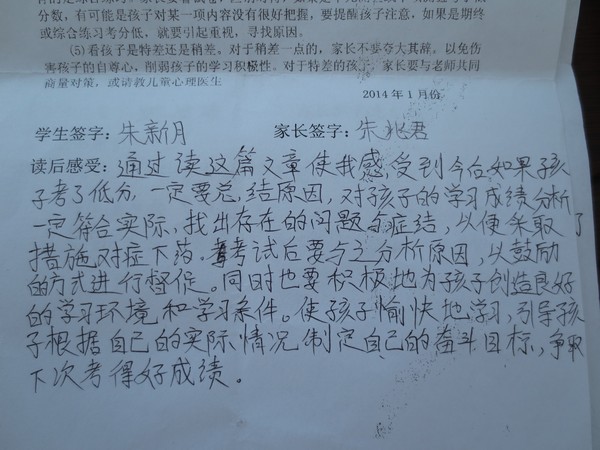 分数，有可能是孩子对某一项内容没有很好把握，要提醒孩子注意，如果是期终
或综合练习考分低，就要引起重视，寻找原因。
(5)看孩子是特差还是稍差。对于稍差一点的，家长不要夸大其辞，以免伤
害孩子的自尊心，削弱孩子的学习积极性。对于特差的孩子，家长要与老师共同
商量对策，或请教儿童心理医生
2014年1月份
学生签字：朱新月 家长签字：朱兆君
读后感受：通过读这篇文章使我感受到今后如果孩
子考了低分，一定要总结原因，对孩子的学习成绩分析
一定符合实际，找出存在的问题与症结，以便采取了
措施对症下药。考试后要与之分析原因，以鼓励
的方式进行督促。同时也要积极地为孩子创造良好
的学习环境和学习条件。使孩子愉快地学习，引导孩
子根据自己的实际情况制定自己的奋斗目标，争取
下次考得好成绩。